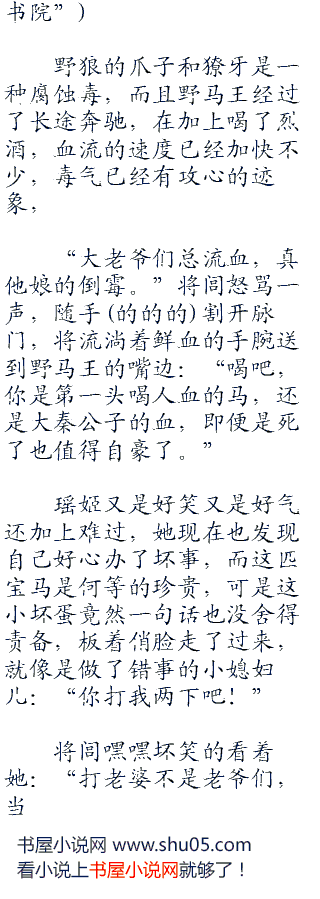 书院”)
野狼的爪子和獠牙是一
种腐蚀毒，而且野马王经过
了长途奔驰，在加上喝了烈
酒，血流的速度已经加快不
少，毒气已经有攻心的迹
象，
“大老爷们总流血，真
他娘的倒霉。”将闾怒骂一
声，随手(的的的)割开脉
门，将流淌着鲜血的手腕送
到野马王的嘴边：“喝吧，
你是第一头喝人血的马，还
是大秦公子的血，即便是死
了也值得自豪了。”
瑶姬又是好笑又是好气
还加上难过，她现在也发现
自己好心办了坏事，而这匹
宝马是何等的珍贵，可是这
小坏蛋竟然一句话也没舍得
责备，板着俏脸走了过来，
就像是做了错事的小媳妇
儿：“你打我两下吧！”
将闾嘿嘿坏笑的看着
她：“打老婆不是老爷们，
当
书屋小说网 www.shu05.com
看小说上书屋小说网就够了！